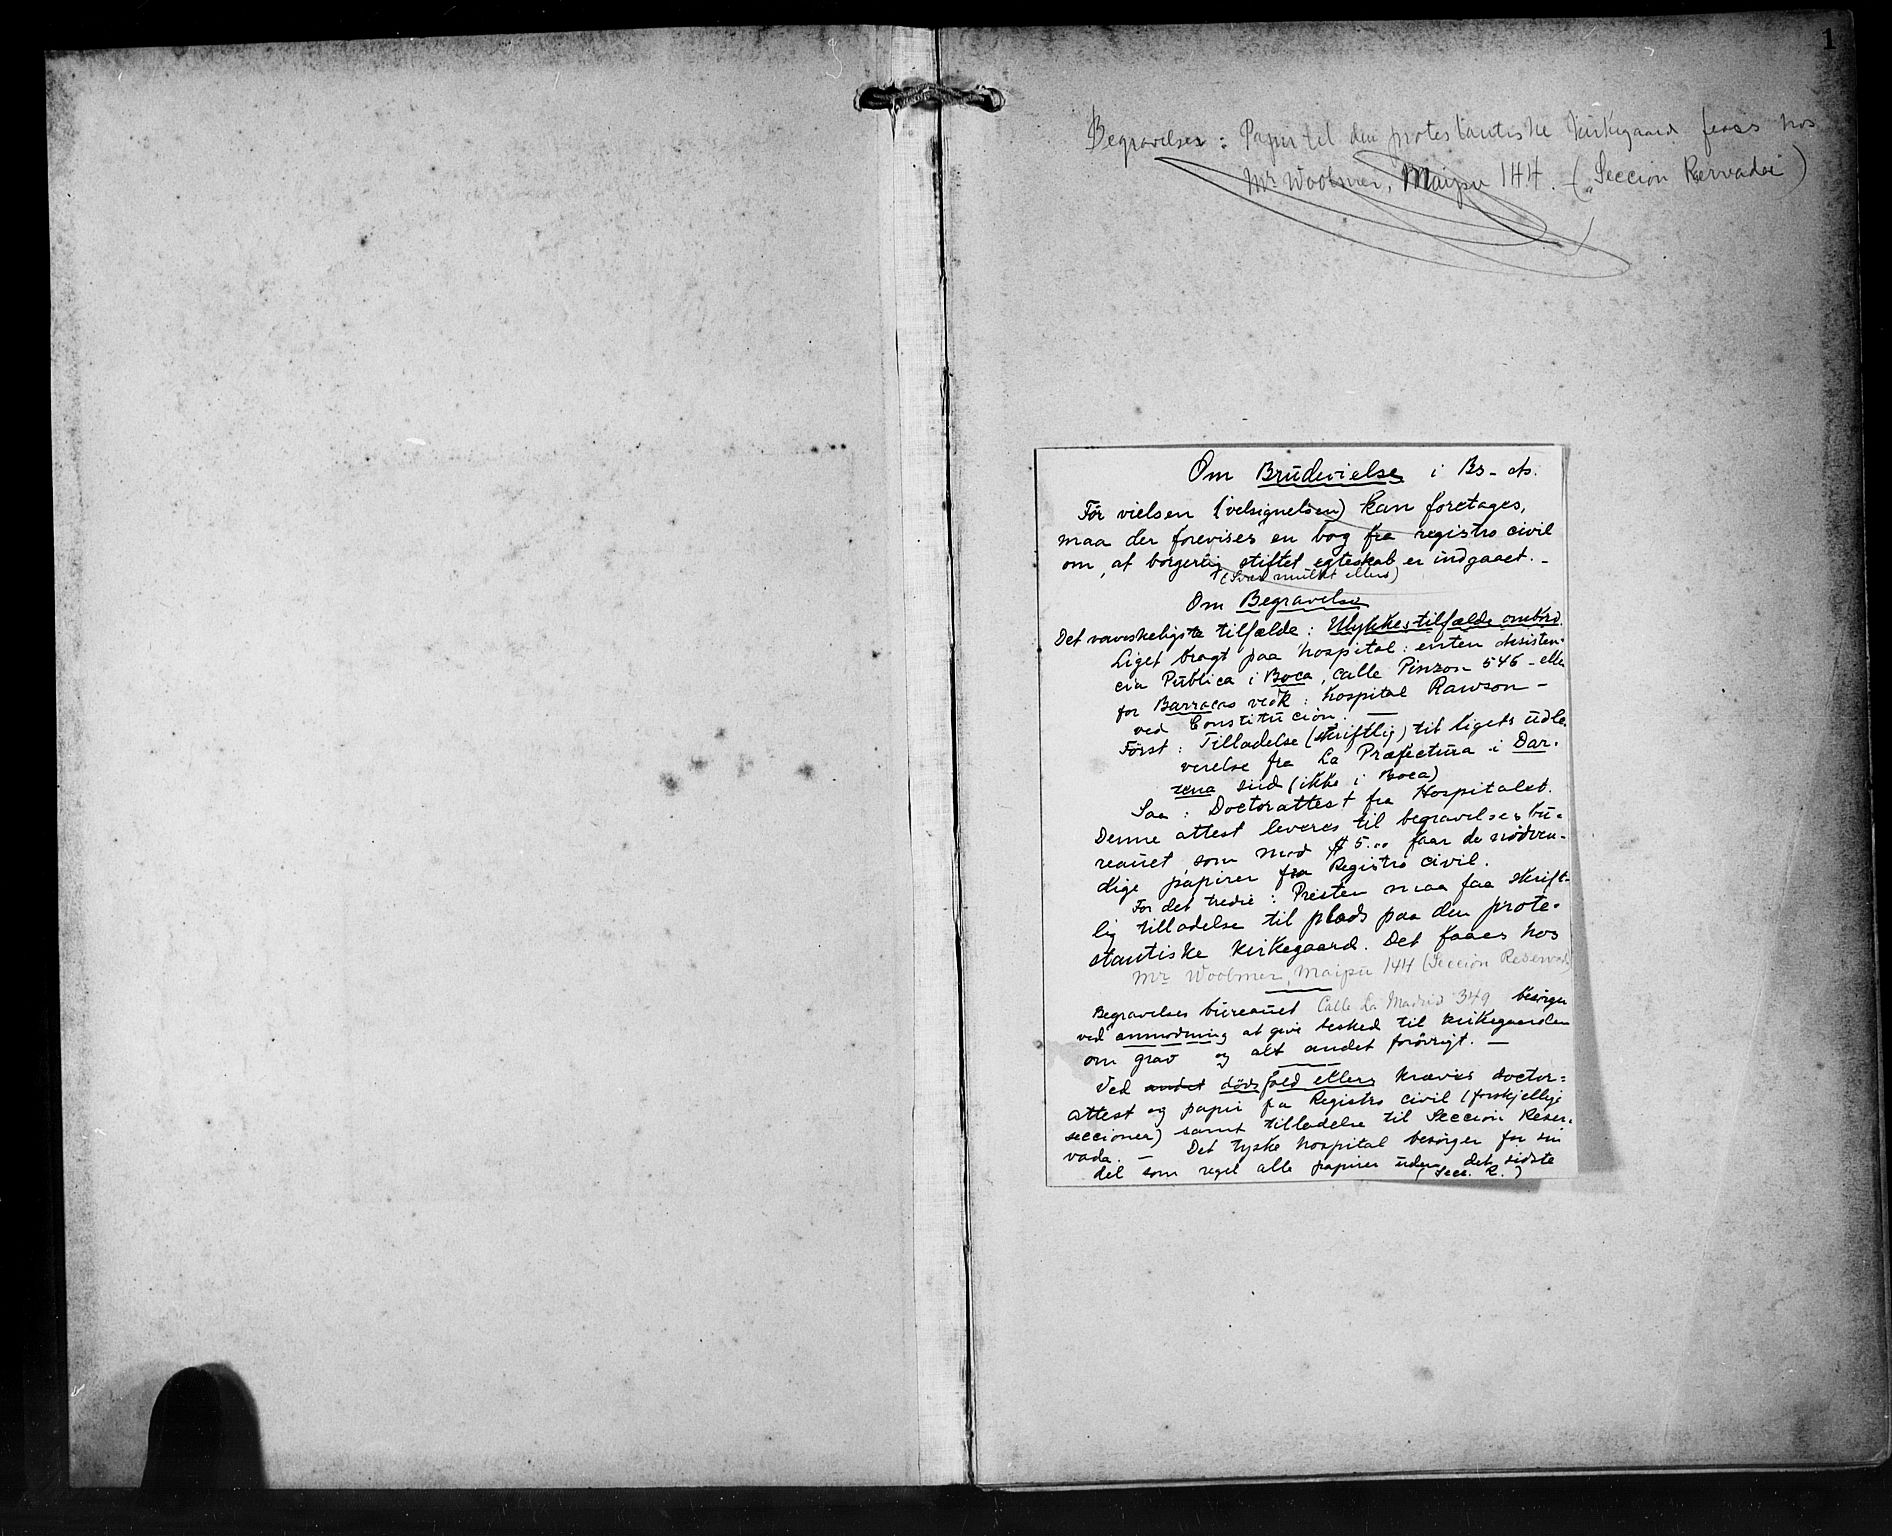 1
Begravelser: Papir til den protestantiske Kirkegaard faaes hos
Mr Woolmer, Maipu 144. - ("Seccion Reservada")
Om Brudevielse i Bs-As.
Før vielsen (velsignelsen) kan foretages,
maa der forevises en bog fra registro civil
om, at borgerlig stiftet egteskab er indgaaet. -
(Svær mulkt ellers)
Om Begravelse
Det vanskeligste tilfælde: Ulykkestilfælde ombord.
Liget bragt paa hospital: enten Asisten-
cia Publica i Boca, calle Pinzon 546 - elle
for Barracas vedk: hospital Rawson -
ved Constitucion. -
Først: Tilladelse (skriftlig) til ligets udle-
verelse fra La Præfectura i Dar-
sena sud (ikke i Boca)
Saa: Doctorattest fra Hospitalet.
Denne attest leveres til begravelsesbu-
reauet som med $ 5.oo faar de nødven-
dige papirer fra Registro civil.
For det tredie: Presten maa faa skrift-
lig tilladelse til plads paa den prote-
stantiske kirkegaard. Det faaes hos
Mr Woolmer, Maipu 144 (Seccion Reservada)
Begravelses bureauet Calle La Madrid 349 besørger
ved anmodning at give besked til kirkegaarden
om grav og alt andet forøvrigt. -
Ved andet dødsfald ellers kræves doctor-
attest og papir fra Registro civil (forskjellige
seccioner) samt tilladelse til Seccion Reser-
vada. - Det tyske hospital besørger for sin
del som regel alle papirer uden det sidste
(Secc. R.)